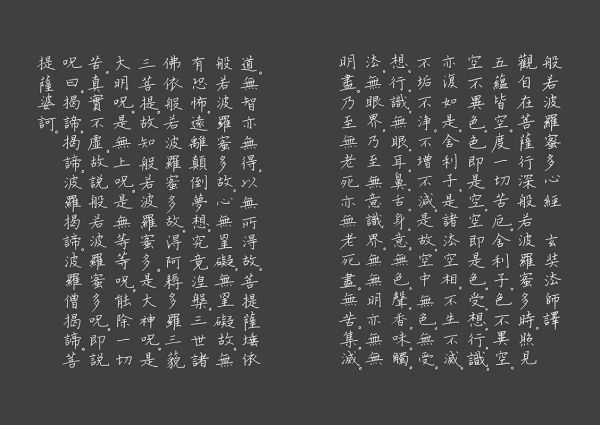 般若波羅蜜多心經　玄奘法師譯
觀自在菩薩行深般若波羅蜜多時。照見
五蘊皆空。度一切苦厄。舍利子。色不異空。
空不異色。色即是空。空即是色。受想行識。
亦復如是。舍利子。是諸法空相。不生不滅。
不垢不淨。不增不減。是故空中無色。無受
想。行識。無眼耳鼻舌身意。無色聲香味觸
法。無眼界。乃至無意識界。無無明亦無無
明盡。乃至無老死亦無老死盡。無苦集滅。
道。無智亦無得。以無所得故。菩提薩埵依
般若波羅蜜多故。心無罣礙。無罣礙故。無
有恐怖。遠離顛倒夢想。究竟涅槃。三世諸
佛依般若波羅蜜多故。得阿耨多羅三藐
三菩提。故知般若波羅蜜多。是大神呪。是
大明呪。是無上呪。是無等等呪。能除一切
苦。真實不虛。故說般若波羅蜜多呪。即說
呪曰。揭諦。揭諦。波羅揭諦。波羅僧揭諦。菩
提薩婆訶。